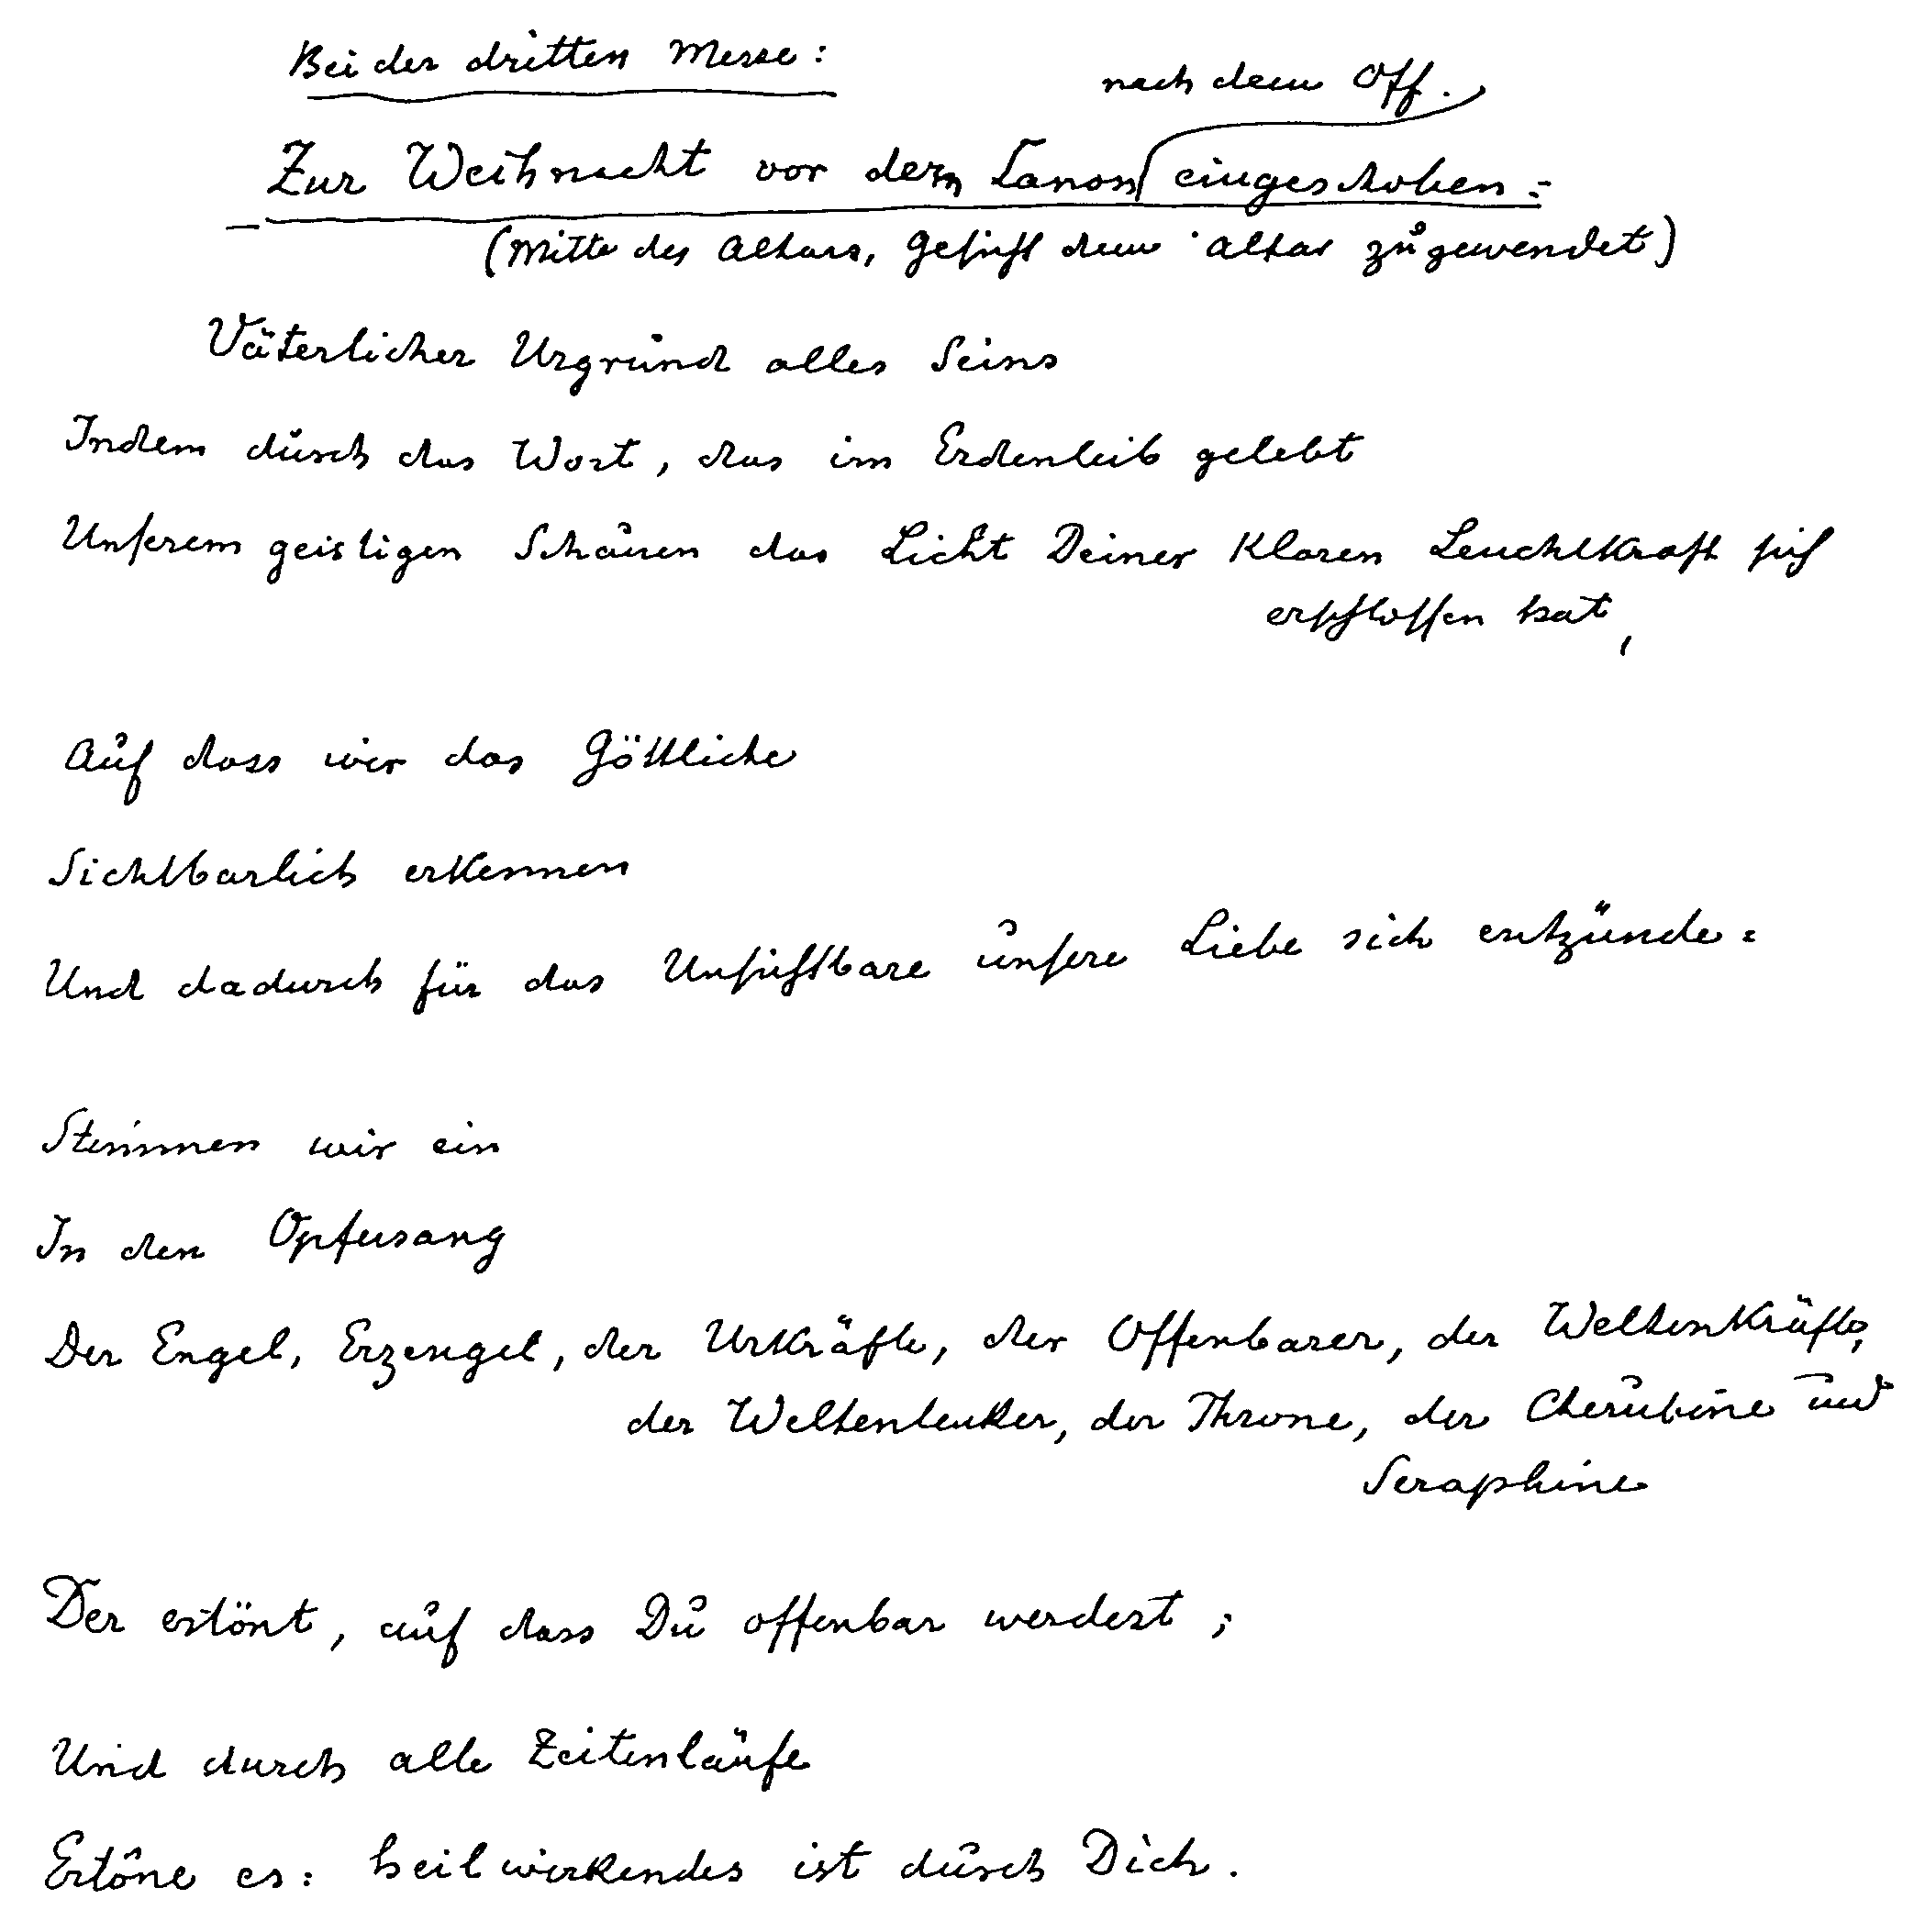 Bei der dritten Messe:
nach dem Off.
Zur Weihnacht vor dem Canon eingeschoben:
(Mitte des Altars, Gesicht dem Altar zugewendet)
Väterlicher Urgrund alles Seins
Indem durch das Wort, das im Erdenleib gelebt
Unserem geistigen Schauen das Licht Deiner klaren Leuchtkraft sich
erschlossen hat,
Auf dass wir das Göttliche
Sichtbarlich erkennen
Und dadurch für das Unsichtbare unsere Liebe sich entzünde:
Stimmen wir ein
In den Opfersang
Der Engel, Erzengel, der Urkräfte, der Offenbarer, der Weltenkräfte,
der Weltenlenker, der Throne, der Cherubine und
Seraphine
Der ertönt, auf dass Du offenbar werdest;
Und durch alle Zeitenläufe
Ertöne es: heilwirkendes ist durch Dich.